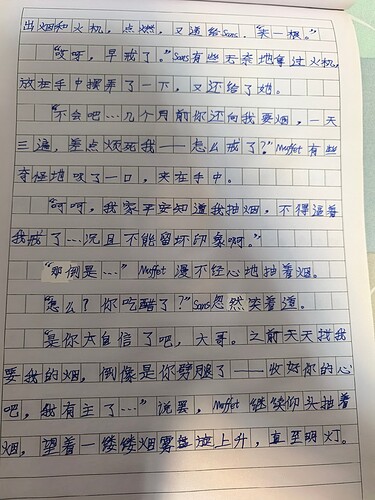 出烟和火机，点燃，又递给Sans，“来一根。”
“哎呀，早戒了。”Sans有些无奈地拿过火机，
放在手中摆弄了一下，又还给了她。
“不会吧…几个月前你还向我要烟，一天
三遍，差点烦死我——怎么戒了？”Muffet有些
奇怪地吸了一口，夹在手中。
“呵呵，我家平安知道我抽烟，不得逼着
我戒了…况且不能留坏印象啊。”
“那倒是…”Muffet漫不经心地抽着烟。
“怎么？你吃醋了？”Sans忽然笑着道。
“是你太自信了吧，大哥。之前天天找我
要我的烟，倒像是你劈腿了——收好你的心
吧，我有主了…”说罢，Muffet继续仰头抽着
烟，望着一缕缕烟雾盘旋上升，直至明灯。